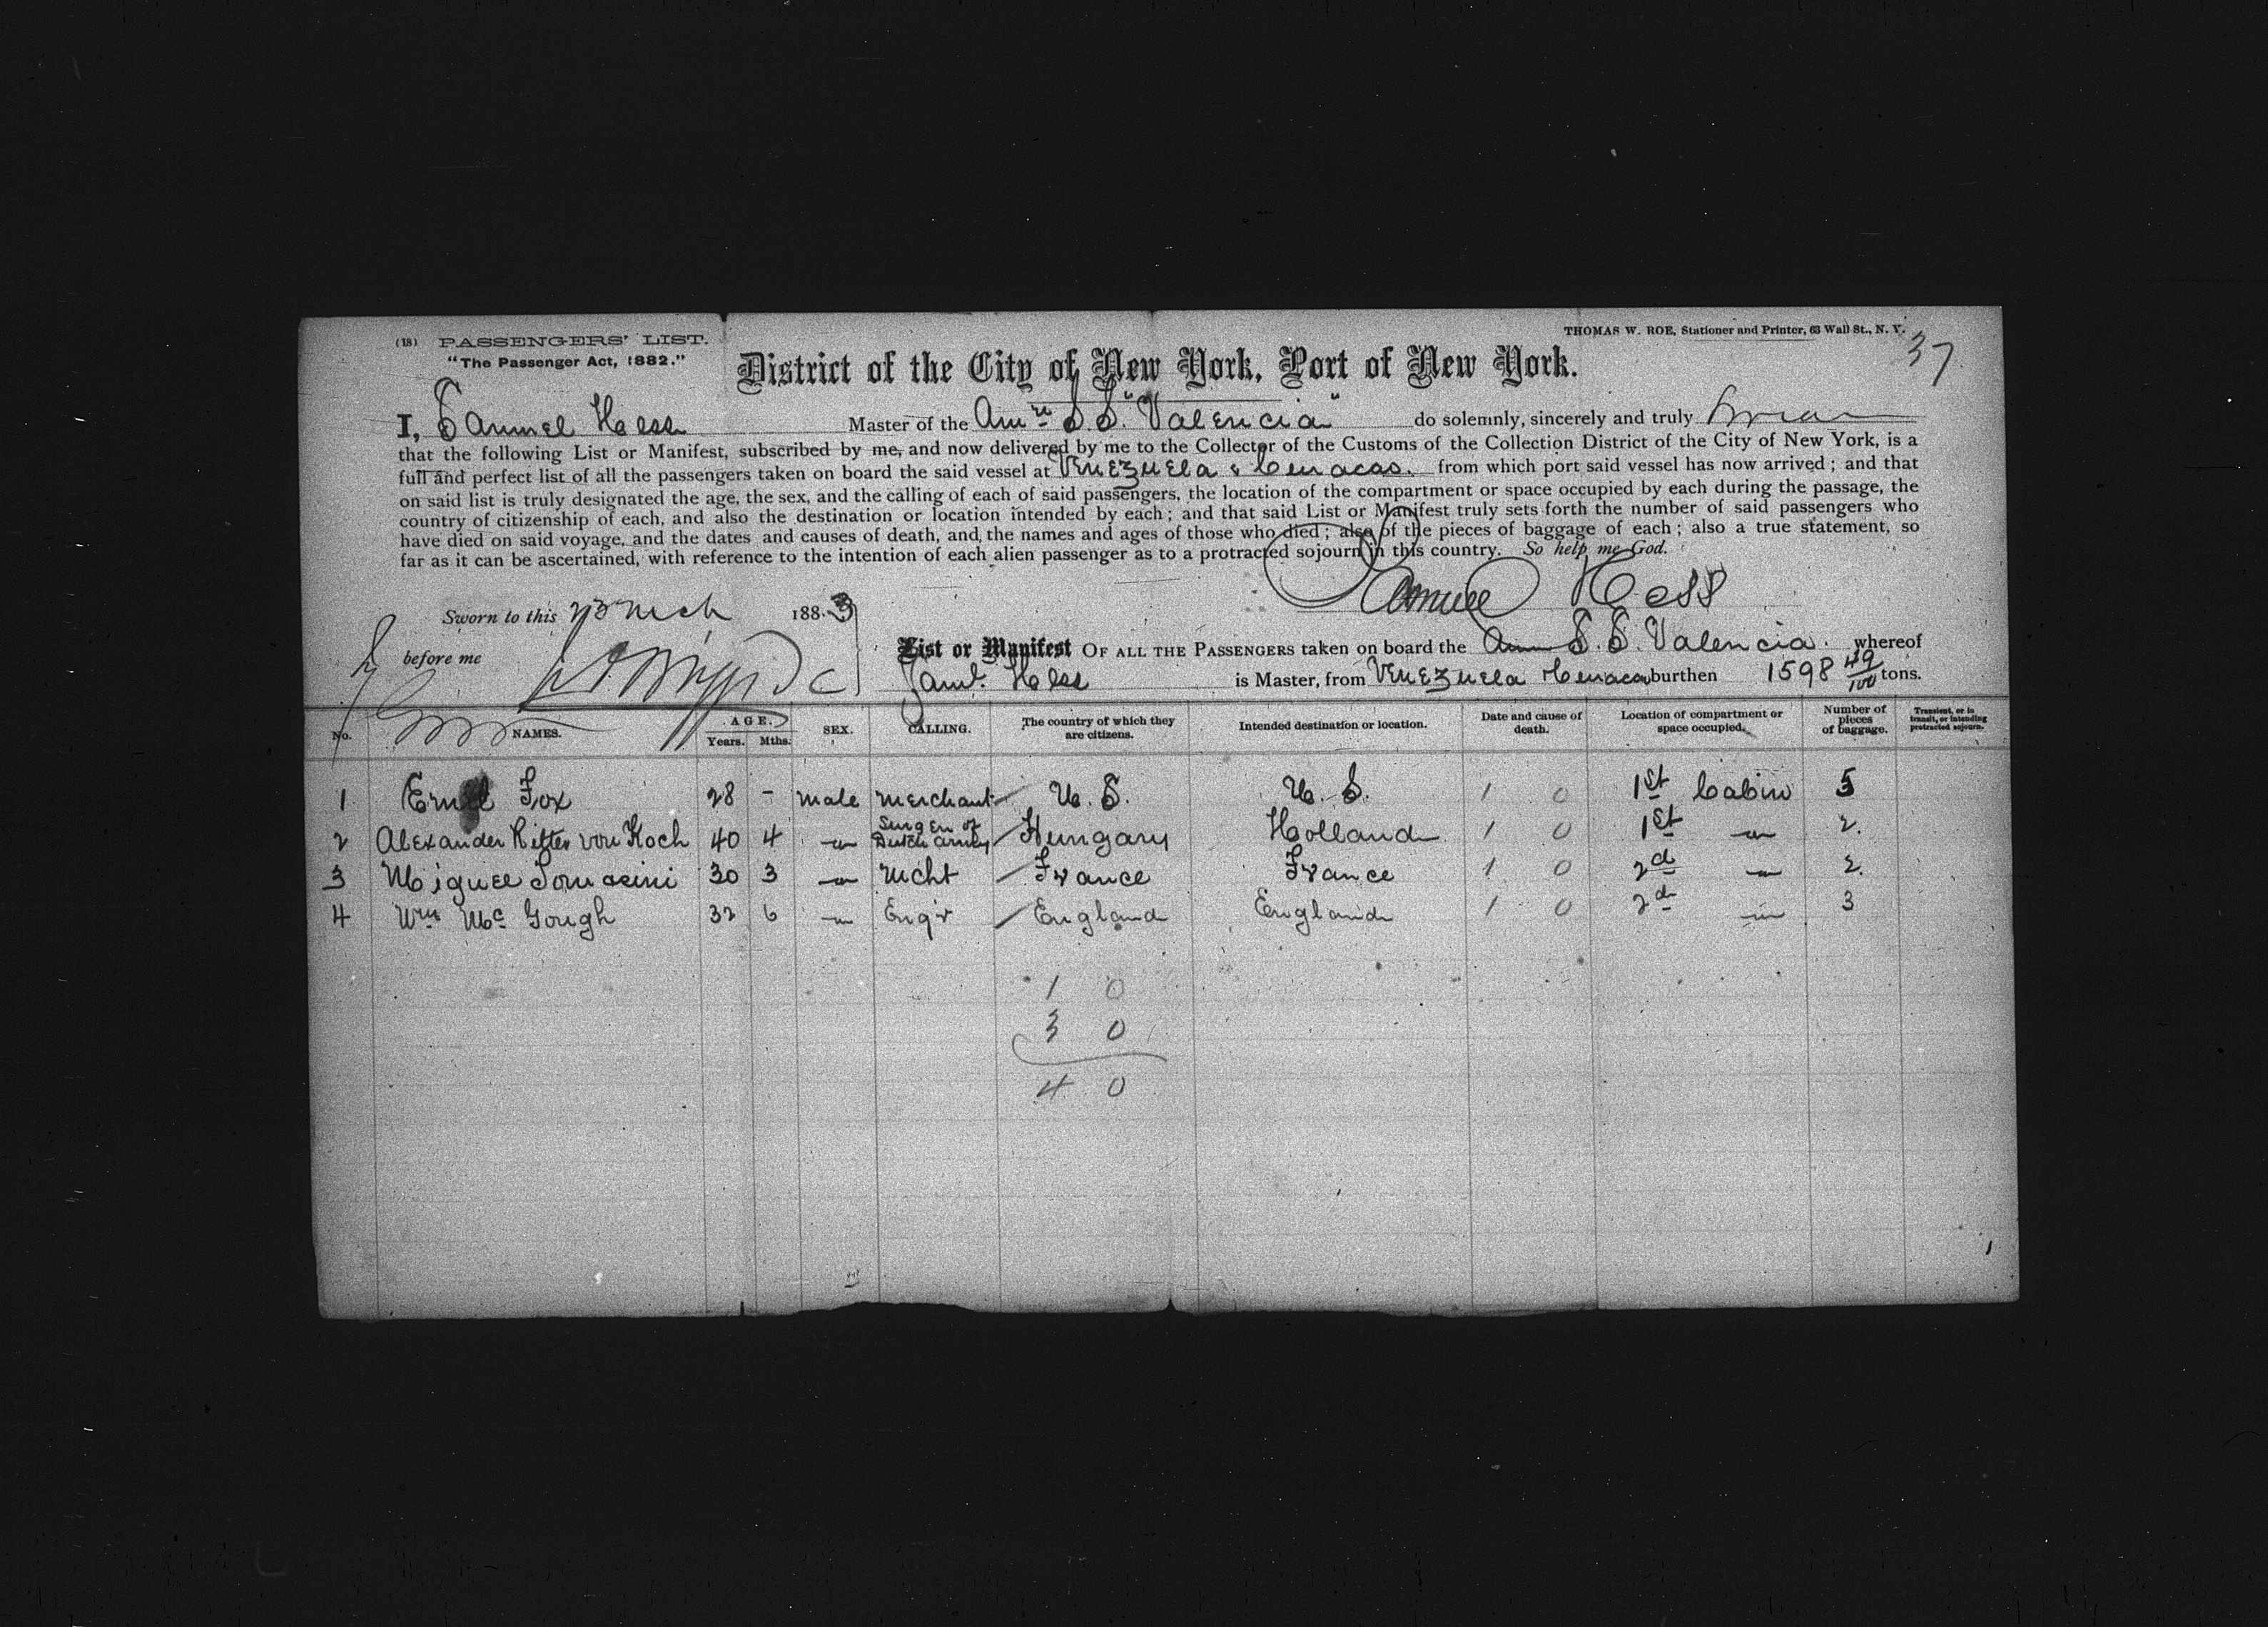 (18) PASSENGERS' LIST.
THOMAS W. ROE, Stationer and Printer, 63 Wall St., N. Y.
37
"The Passenger Act, 1882."
District of the City of New York, Port of New York.
I, Samuel Hess Master of the Amn S S. "Valencia" do solemnly, sincerely and truly
that the following List or Manifest, subscribed by me, and now delivered by me to the Collector of the Customs of the Collection District of the City of New York, is a
full and perfect list of all the passengers taken on board the said vessel at Venezuela & Curacao. from which port said vessel has now arrived; and that
on said list is truly designated the age, the sex, and the calling of each of said passengers, the location of the compartment or space occupied by each during the passage, the
country of citizenship of each, and also the destination or location intended by each; and that said List or Manifest truly sets forth the number of said passengers who
have died on said voyage, and the dates and causes of death, and, the names and ages of those who died; also of the pieces of baggage of each; also a true statement, so
far as it can be ascertained, with reference to the intention of each alien passenger as to a protracted sojourn in this country. So help me God.
Samuel Hess
Sworn to this 23 Mch 1883
before me
List or Manifest OF ALL THE PASSENGERS taken on board the Am S. S. Valencia. whereof
Saml. Hess is Master, from Venezuela & Curacao burthen 1598 49/100 tons.
No. NAMES. AGE. Years. Mths. SEX. CALLING. The country of which they are citizens. Intended destination or location. Date and cause of death. Location of compartment or space occupied. Number of pieces of baggage. Transient, or in transit, or intending protracted sojourn.
1 Fox 28 - male merchant U. S. U. S. 1 0 1st Cabin 5
2 Alexander Ritter von Koch 40 4 " Surgen of Dutch army Hungary Holland 1 0 1st " 2.
3 Miguel Tomasini 30 3 " Mcht France France 1 0 2d " 2.
4 Wm Mc Gough 32 6 " Eng'r England England 1 0 2d " 3
1 0
3 0
4 0